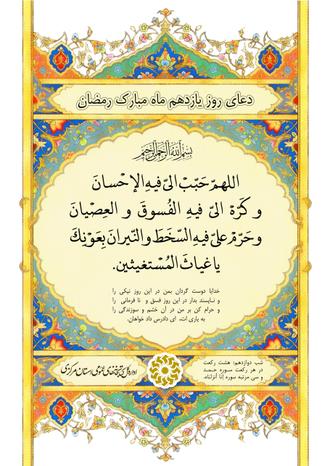 دعای روز یازدهم ماه مبارک رمضان
بسم الله الرحمن الرحیم
اللهمّ حَبّبْ الیّ فیهِ الإحْسانَ
و کَرّهْ الیّ فیهِ الفُسوقَ و العِصْیانَ
و حَرّم علیّ فیهِ السّخَطَ و النّیرانَ بِعَوْنِکَ
یا غیاثَ المُسْتغیثین.
خدایا دوست گردان بمن در این روز نیکی را
و ناپسند بدار در این روز فسق و نافرمانی را
و حرام کن بر من در آن خشم و سوزندگی را
به یاری ات، ای دادرس داد خواهان.
شب دوازدهم: هشت رکعت
در هر رکعت سوره حمد
و سی مرتبه سوره اِنّا اَنزَلناه.
اداره کل کتابخانه‌های عمومی استان مرکزی